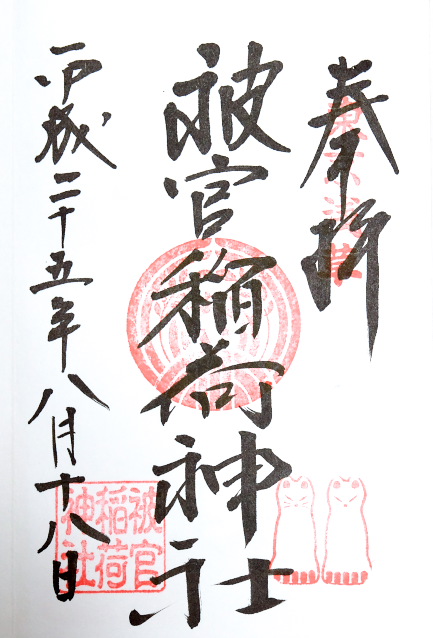 奉拝
東京浅草
被官稲荷神社
平成二十五年八月十八日
被官
稲荷
神社